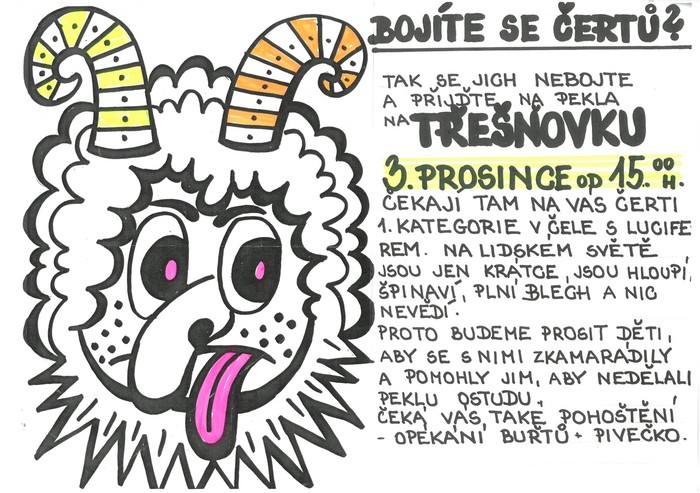 BOJÍTE SE ČERTŮ?
TAK SE JICH NEBOJTE
A PŘIJĎTE NA PEKLA
NA TŘEŠŇOVKU
3. PROSINCE OD 15.00 H.
ČEKAJÍ TAM NA VÁS ČERTI
1. KATEGORIE V ČELE S LUCIFE
REM. NA LIDSKÉM SVĚTĚ
JSOU JEN KRÁTCE, JSOU HLOUPÍ,
ŠPINAVÍ, PLNÍ BLECH A NIC
NEVĚDÍ.
PROTO BUDEME PROSIT DĚTI,
ABY SE S NIMI ZKAMARÁDILY
A POMOHLY JIM, ABY NEDĚLALI
PEKLU OSTUDU.
ČEKÁ VÁS TAKÉ POHOŠTĚNÍ
- OPÉKÁNÍ BUŘTŮ + PIVEČKO.